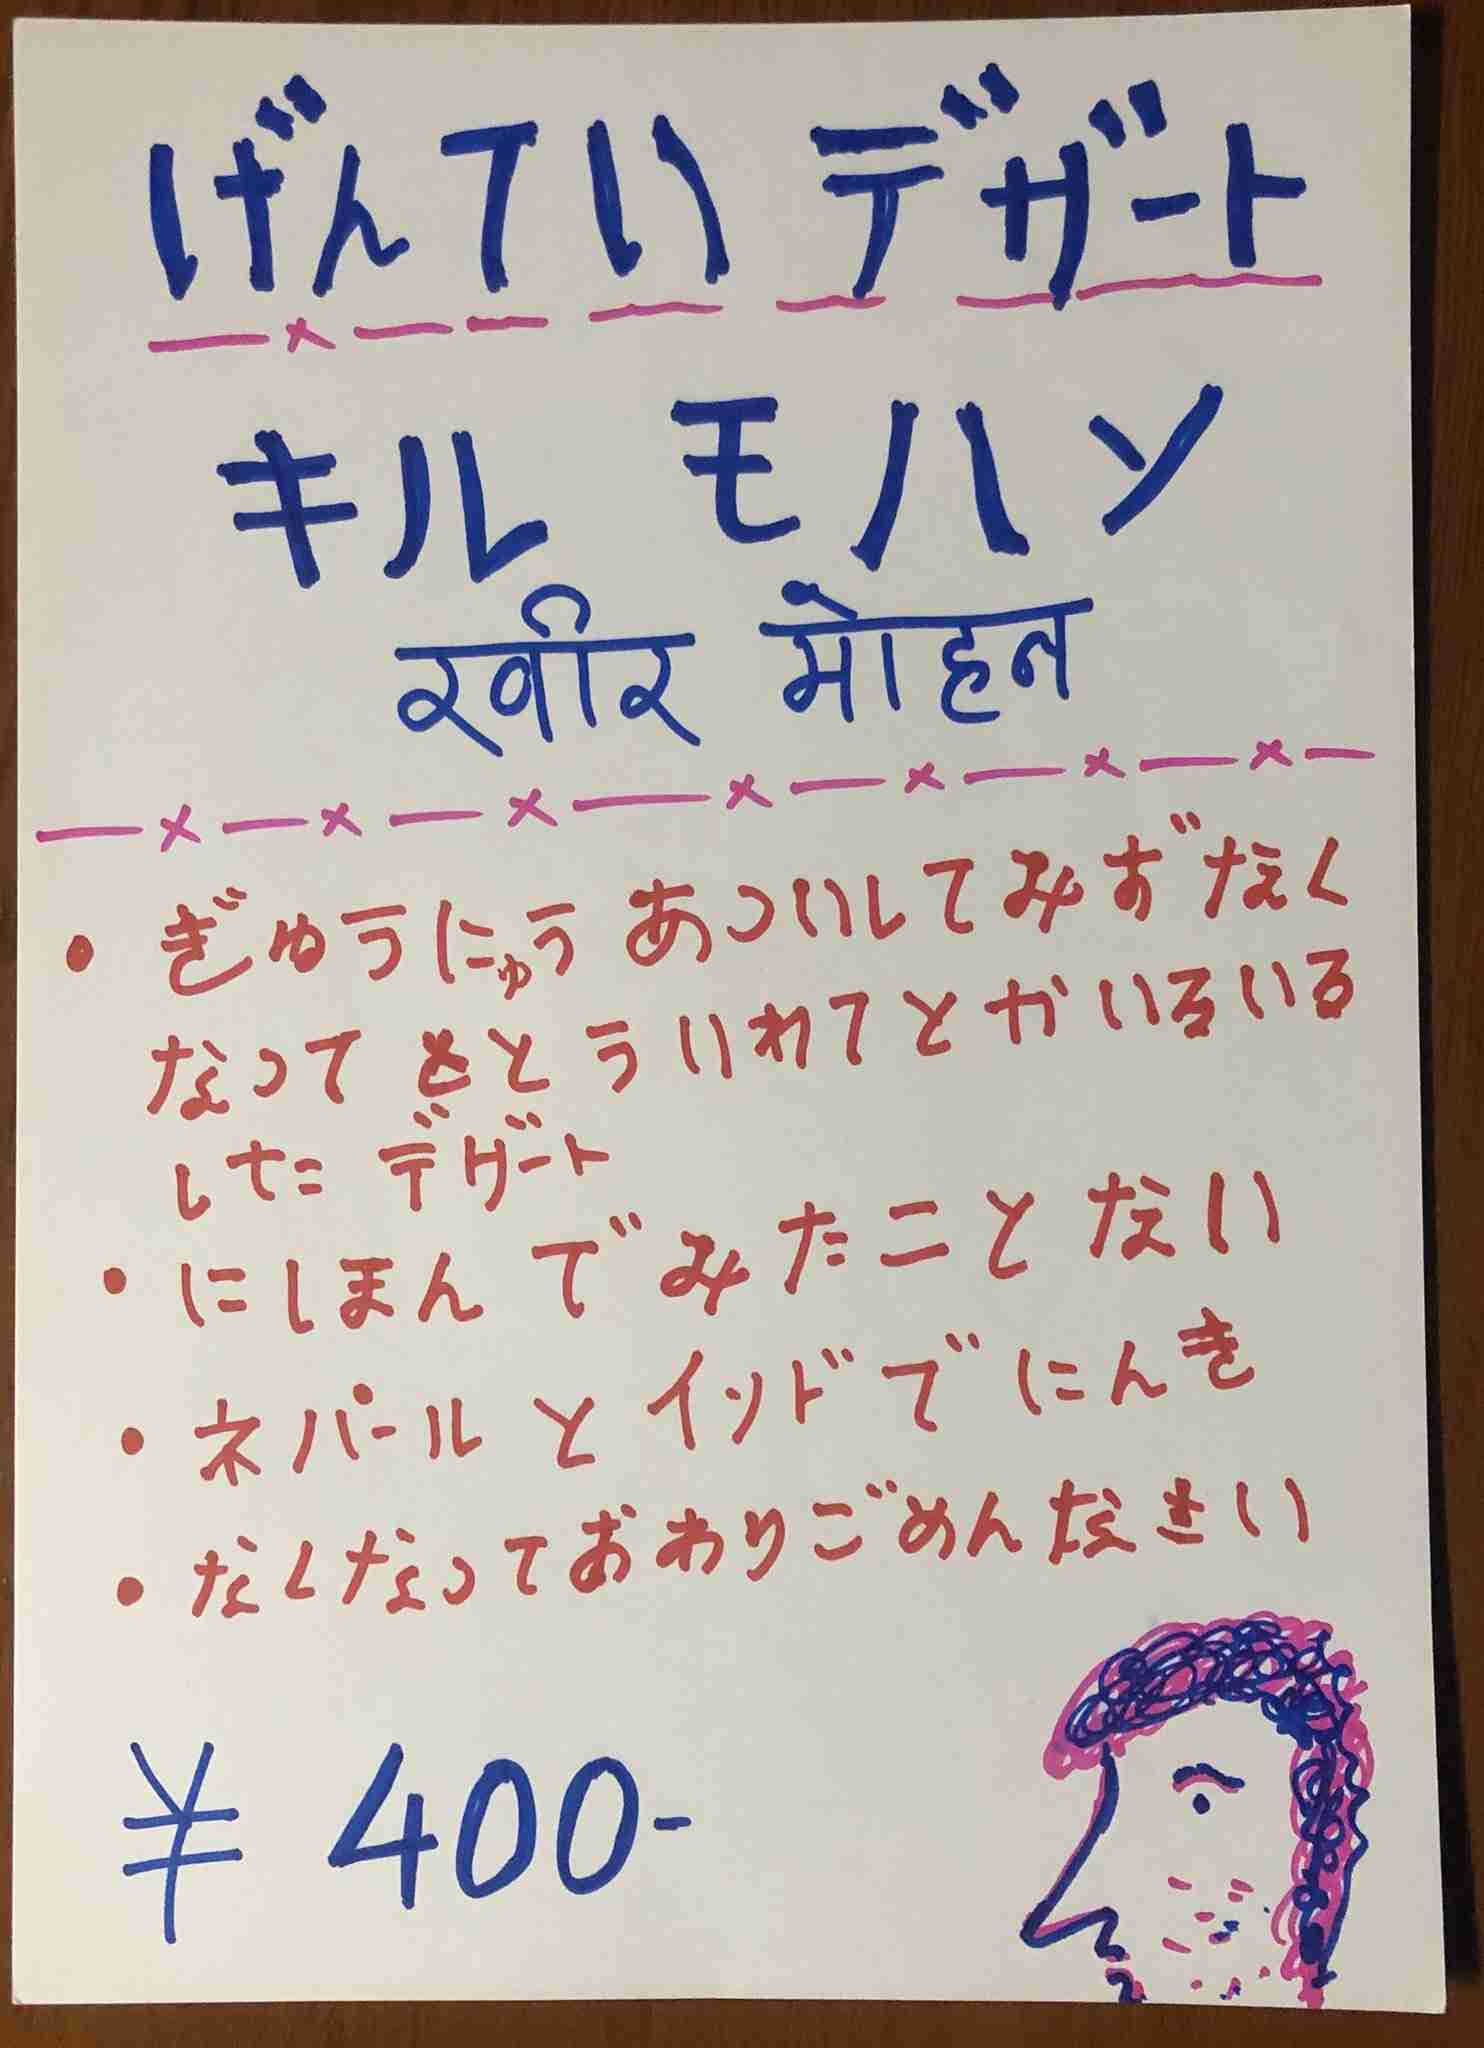 げんてい デザート
キル モハン
खीर मोहन
・ぎゅうにゅう あついしてみずなく
なって さとう いれてとかいろいろ
したデザート
・にしまんでみたことない
・ネパールとインドでにんき
・なくなっておわりごめんなさい
¥400-